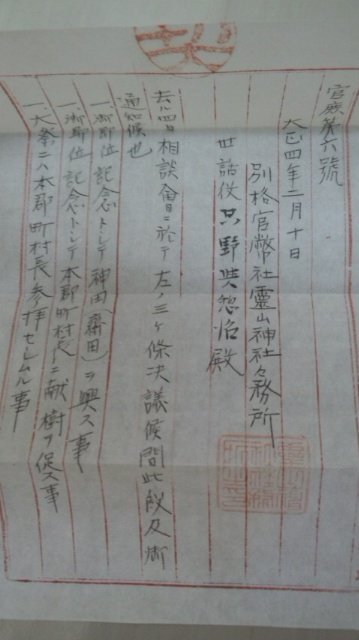 官庶第六號
大正四年二月十日
別格官幣社靈山神社々務所
世話役 只野與惣治殿
去ル四日相談會ニ於テ左ノ三ヶ條決議候間此段及御
通知候也
一、御即位記念トシテ神田(齋田)ヲ興ス事
一、御即位記念トシテ本郡町村長ニ献樹ヲ促ス事
一、大祭ニハ本郡町村長参拝セシムル事